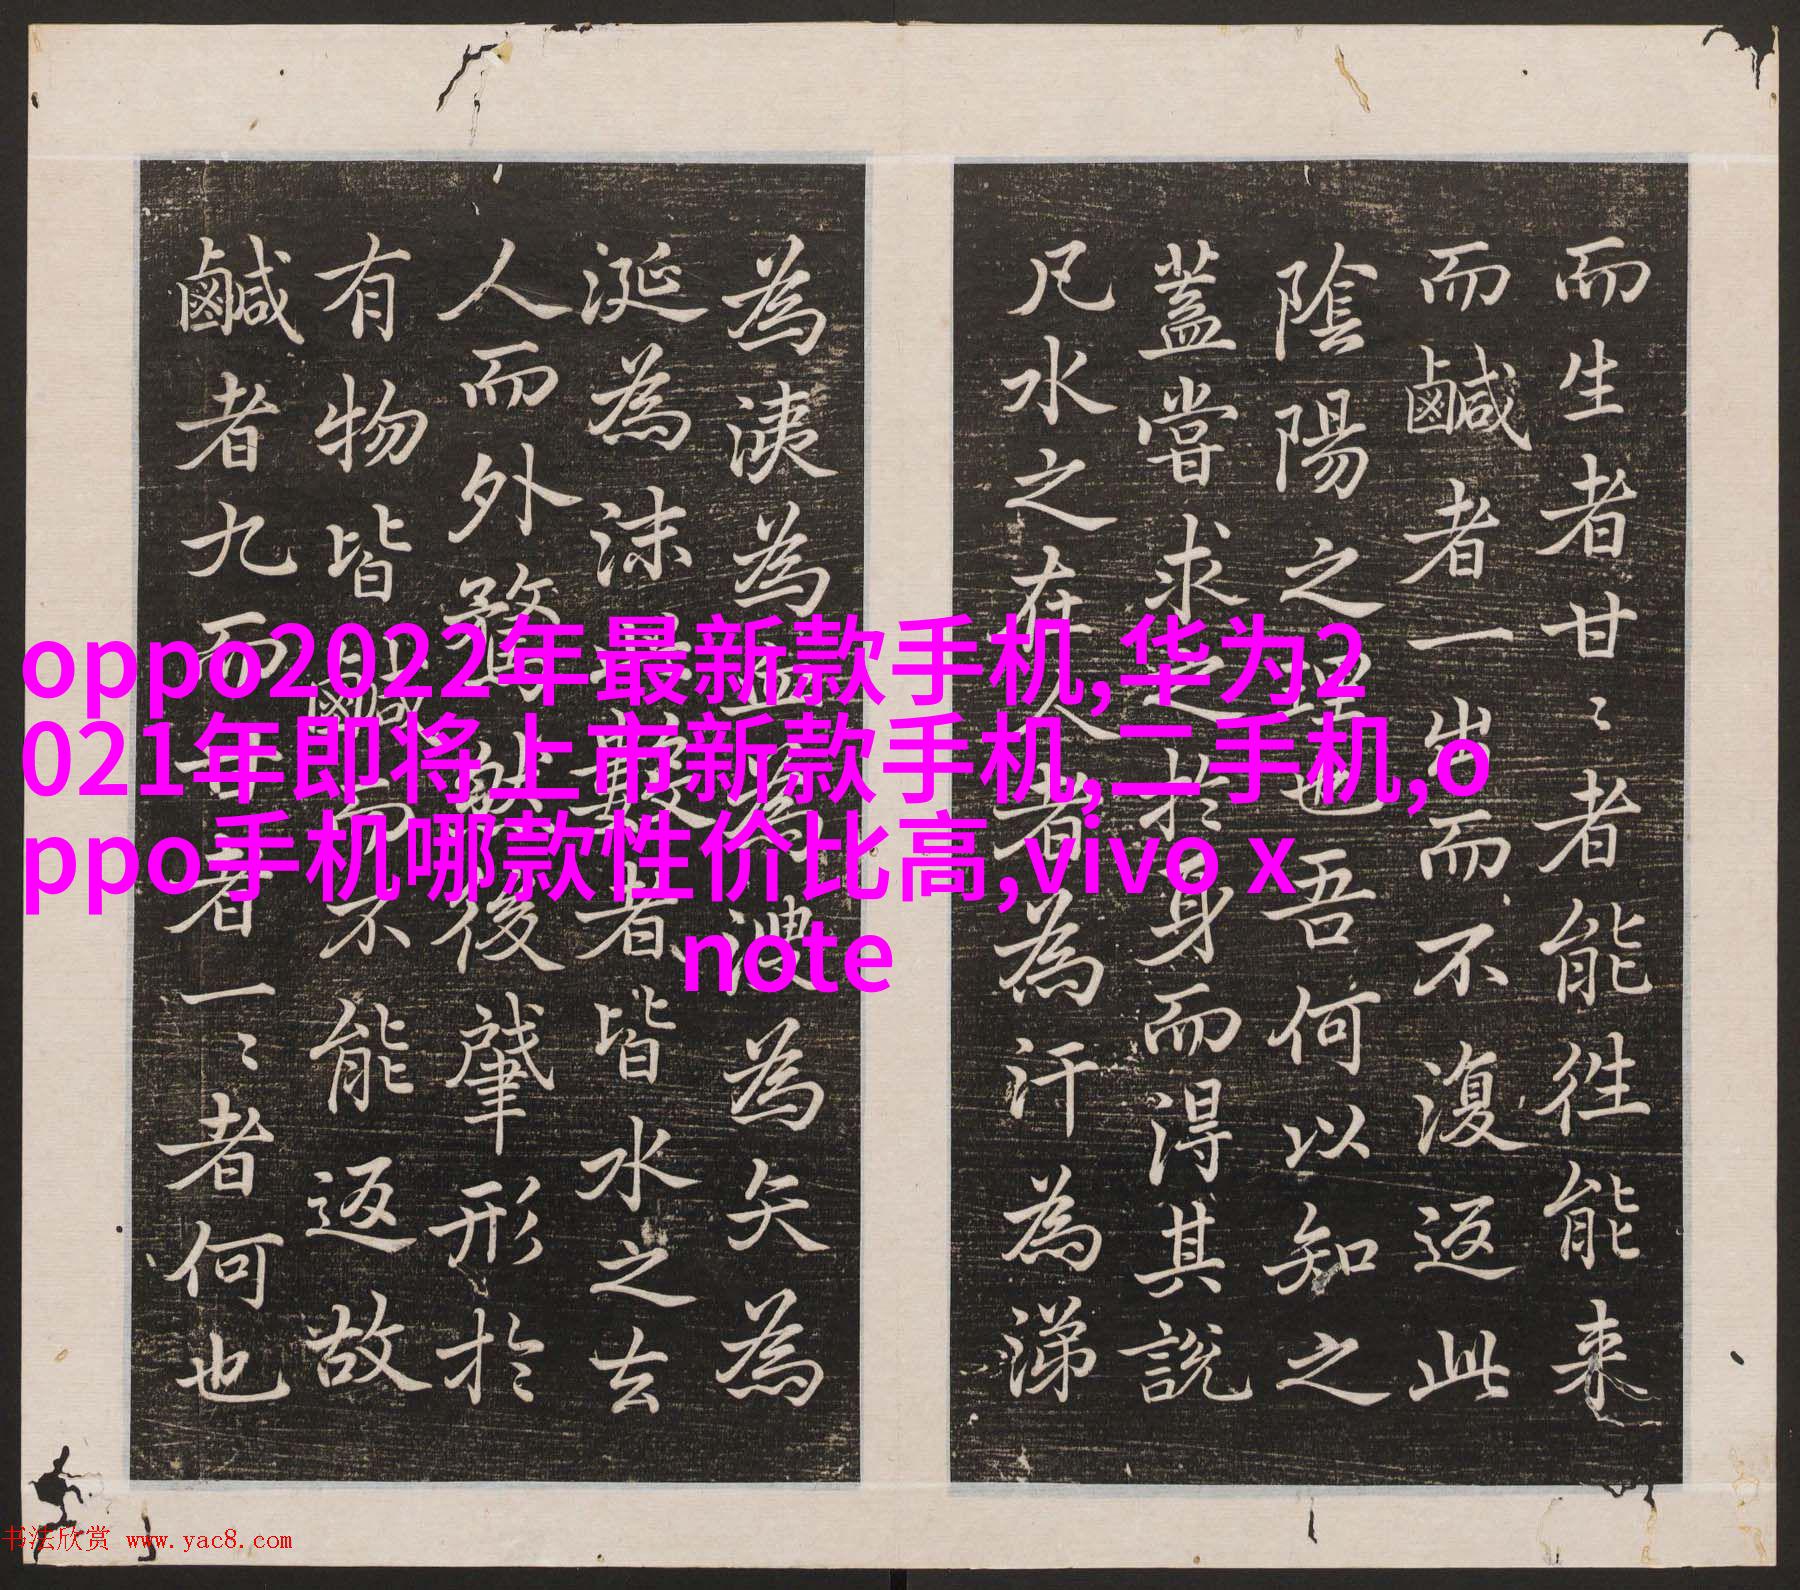 而生者甘〻者能往能来
而鹹者一出而不復返此
陰陽之理也吾何以知之
蓋嘗求之於身而得其說
凡水之在人者為汗為涕
為洟為血為溲為矢為
涎為沫數者皆水之去
人而外騖然後肇形於
有物皆鹹而不能返故
鹹者九而甘者一〻者何也
oppo2022年最新款手机,华为2
021年即将上市新款手机,二手机,o
ppo手机哪款性价比高,vivo x
note
书法欣赏 www.yac8.com